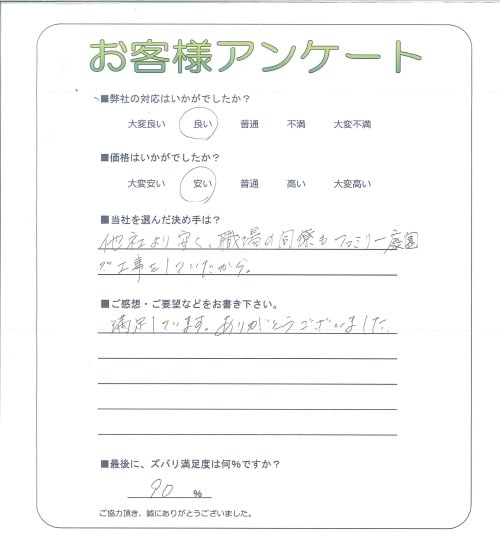 お客様アンケート
■弊社の対応はいかがでしたか？
大変良い 良い 普通 不満 大変不満
■価格はいかがでしたか？
大変安い 安い 普通 高い 大変高い
■当社を選んだ決め手は？
他社より安く、職場の同僚もファミリー庭園
で工事をしていたから。
■ご感想・ご要望などをお書き下さい。
満足しています。ありがとうございました。
■最後に、ズバリ満足度は何%ですか？
90 %
ご協力頂き、誠にありがとうございました。